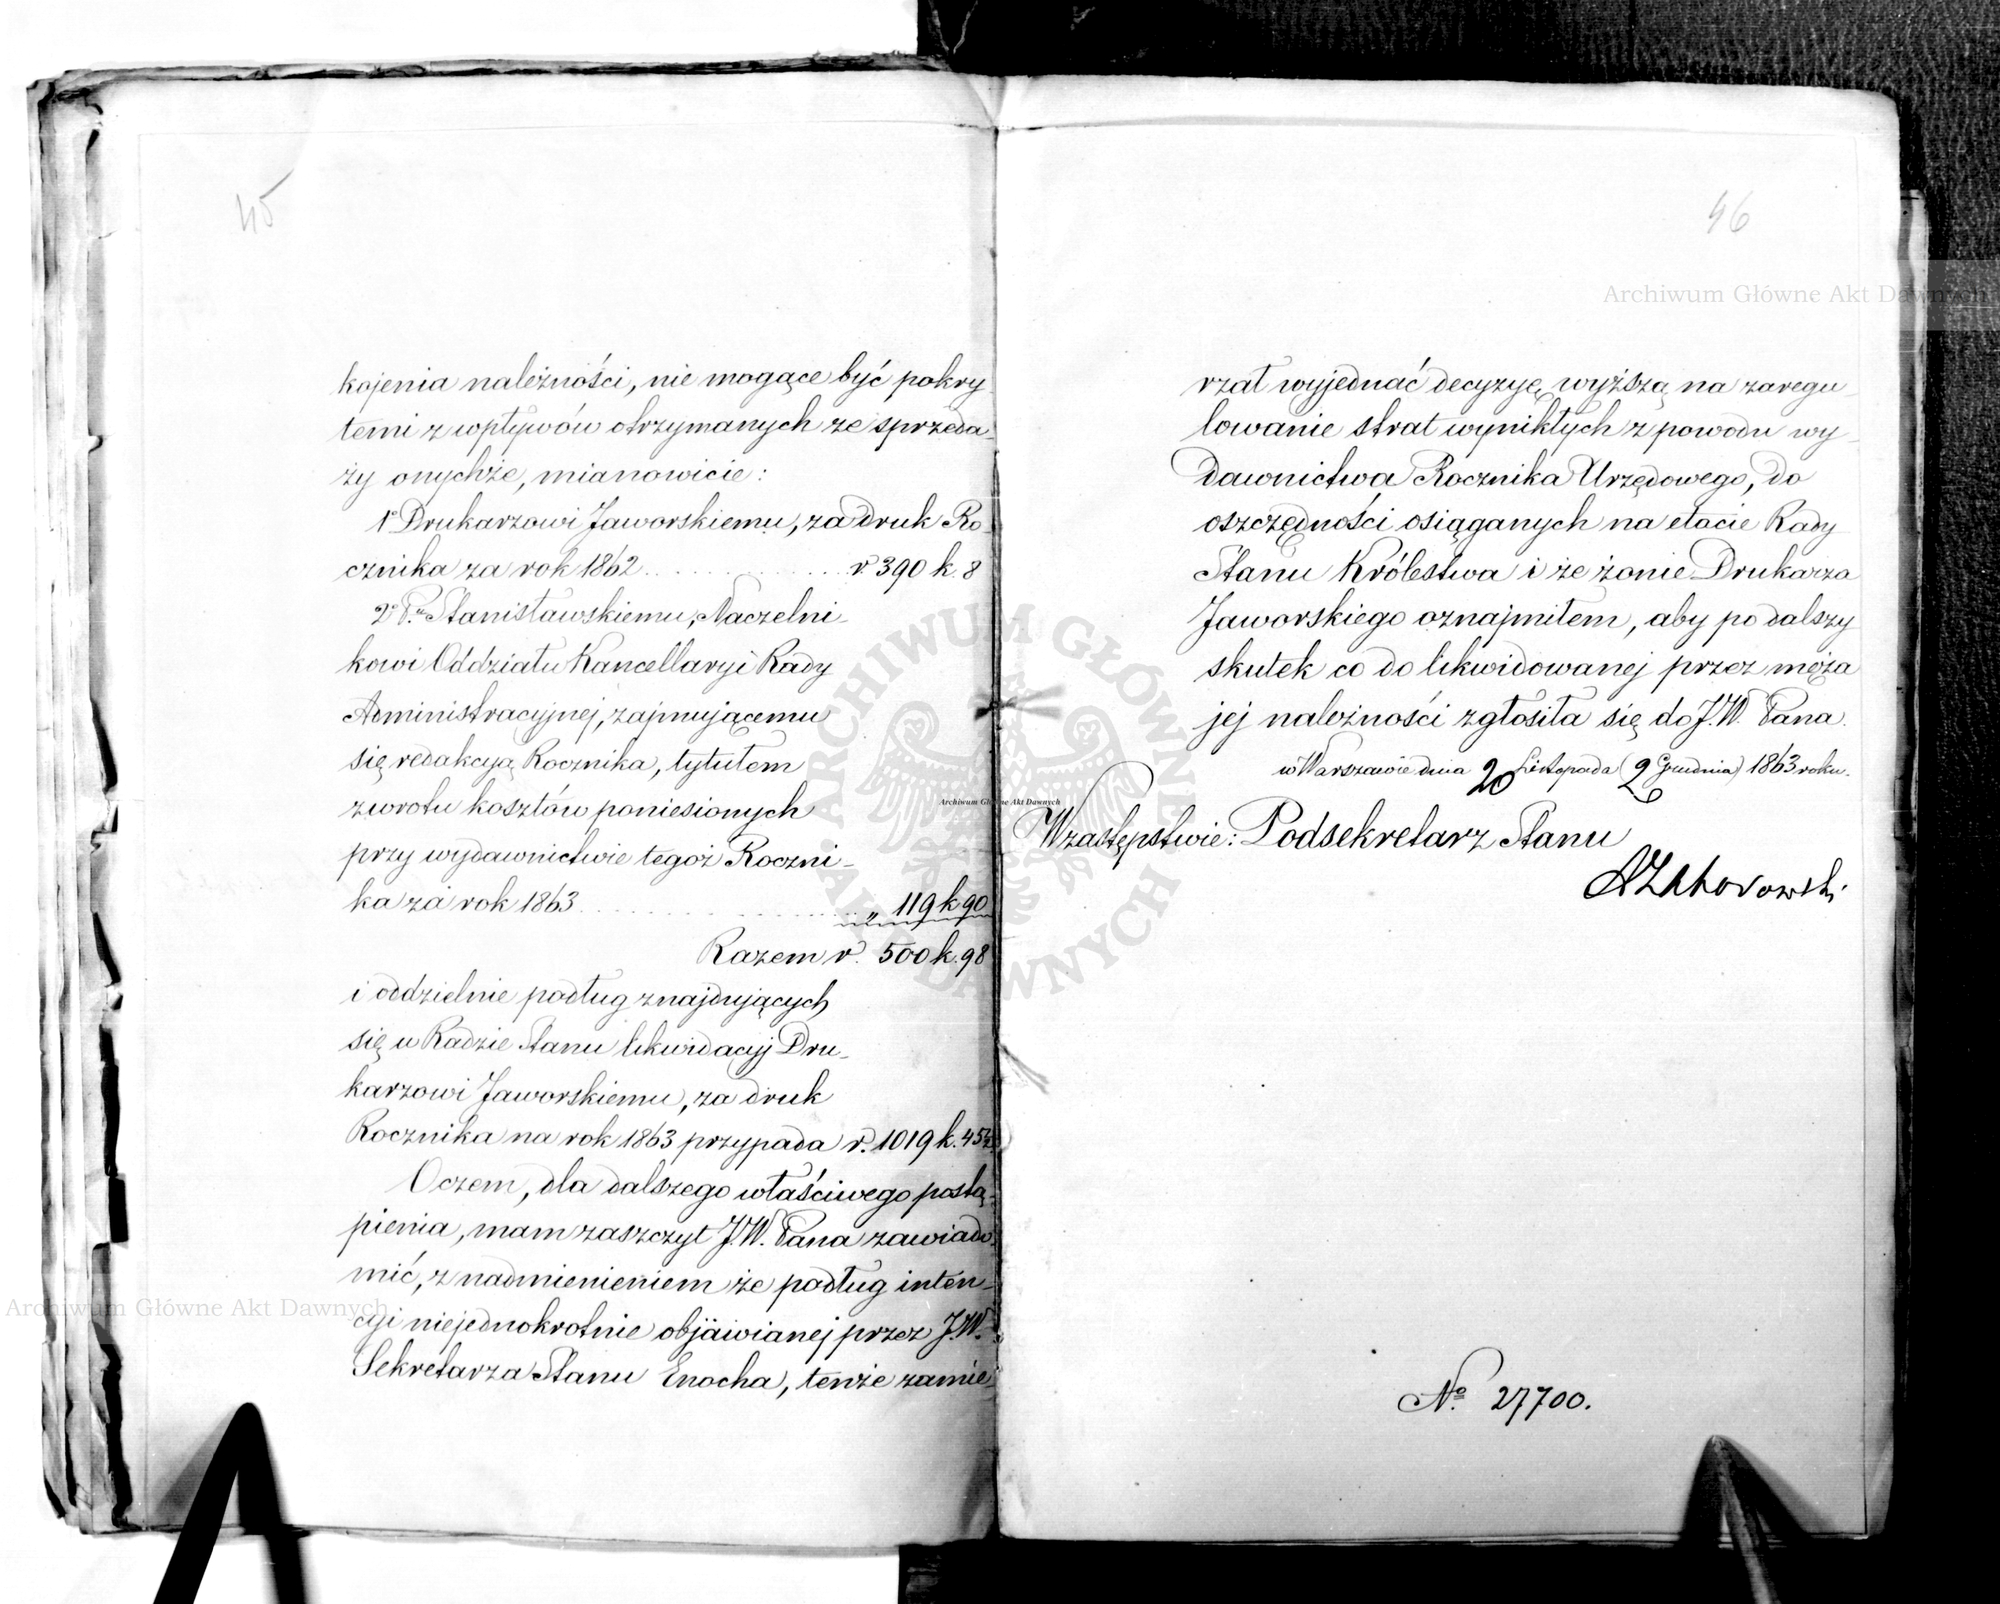 45
kojenia należności, nie mogące być pokry
temi z wpływów otrzymanych ze sprzeda-
ży onychże, mianowicie:
1º Drukarzowi Jaworskiemu, za druk Ro-
cznika za rok 1862 r. 390 k. 8
2º Stanisławskiemu, Naczelni-
kowi Oddziału Kancellaryi Rady
Administracyjnej, zajmującemu
się redakcyą Rocznika, tytułem
zwrotu kosztów poniesionych
przy wydawnictwie tegoż Roczni-
ka za rok 1863 „ 119 k 90
Razem r. 500 k. 98
i oddzielnie podług znajdujących
się w Radzie Stanu likwidacyj Dru-
karzowi Jaworskiemu, za druk
Rocznika na rok 1863 przypada r. 1019 k. 45½
O czem, dla dalszego właściwego postą-
pienia, mam zaszczyt J.W. Pana zawiado-
mić, z nadmienieniem że podług inten-
cyi niejednokrotnie objawianej przez J.W.
Sekretarza Stanu Enocha, tenże zamie-
46
rzał wyjednać decyzyę wyższą na zaregu-
lowanie strat wynikłych z powodu wy-
dawnictwa Rocznika Urzędowego, do
oszczędności osiąganych na etacie Rady
Stanu Królestwa i że żonie Drukarza
Jaworskiego oznajmiłem, aby po dalszy
skutek co do likwidowanej przez męża
jej należności zgłosiła się do J.W. Pana.
w Warszawie dnia 20 Listopada (2 Grudnia) 1863 roku.
W zastępstwie: Podsekretarz Stanu
AZaborowski
Nº 27700.
Archiwum Główne Akt Dawnych
Archiwum Główne Akt Dawnych
Archiwum Główne Akt Dawnych
ARCHIWUM GŁÓWNE AKT DAWNYCH